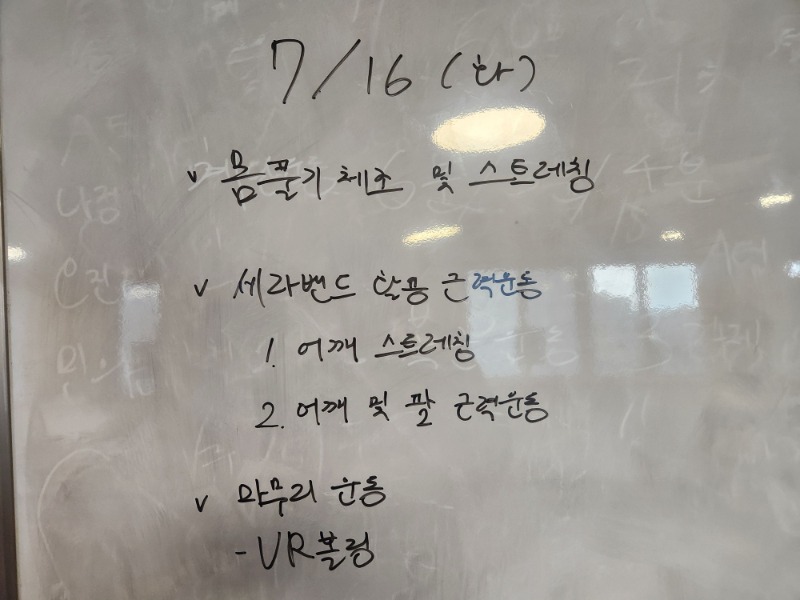 7/16 (화)
v 몸풀기 체조 및 스트레칭
v 세라밴드 활용 근력운동
1. 어깨 스트레칭
2. 어깨 및 팔 근력운동
v 마무리 운동
- VR볼링